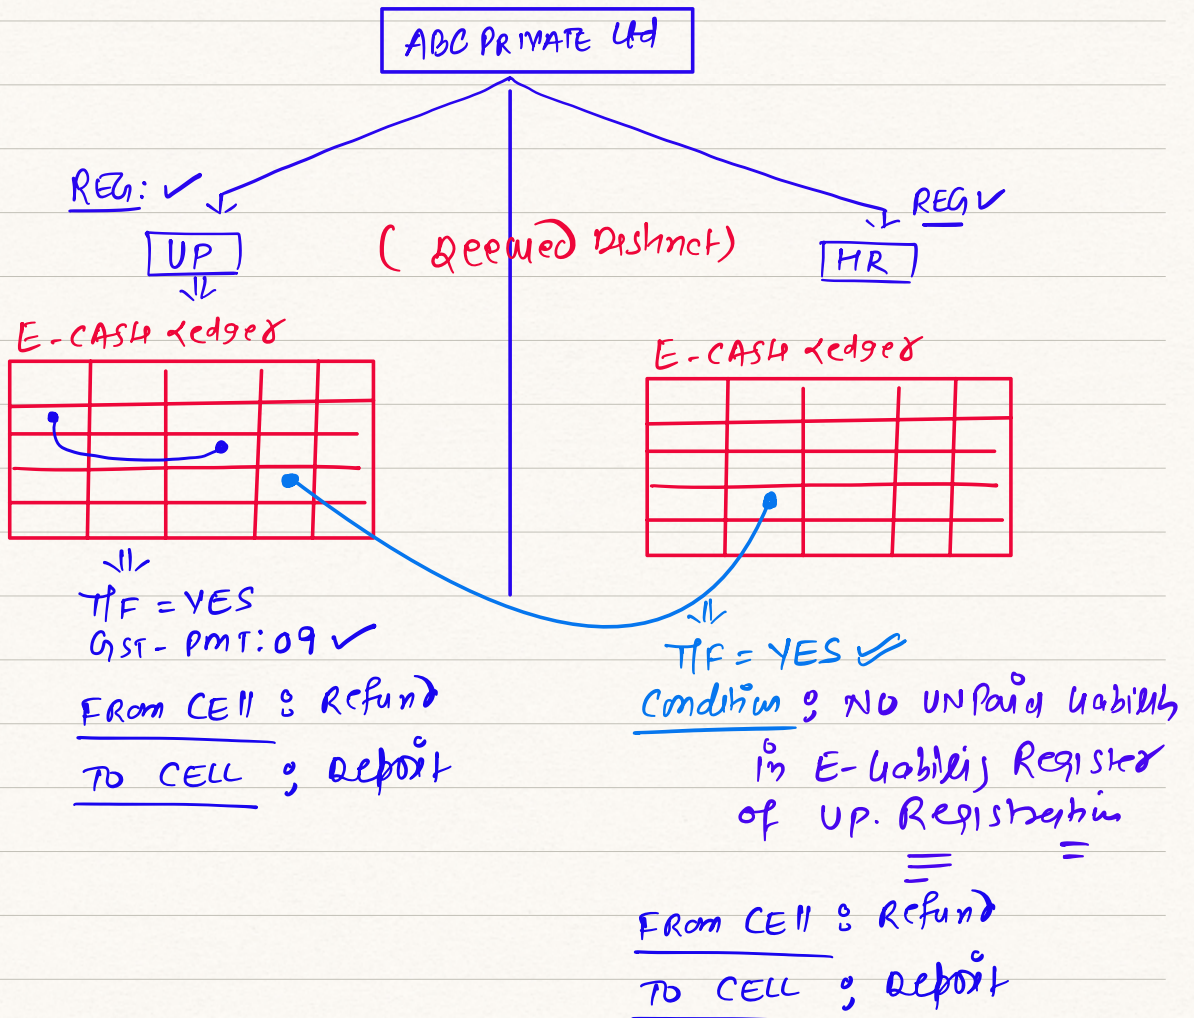 ABC PRIVATE Ltd
REG: ✓
REG ✓
UP
(Deemed Distinct)
HR
E-CASH Ledger
E-CASH Ledger
T/F = YES
GST-PMT: 09 ✓
FROM CELL : Refund
TO CELL : Deposit
T/F = YES ✓
Condition : NO UNPaid Liability
in E-Liability Register
of UP. Registration
FROM CELL : Refund
TO CELL : Deposit